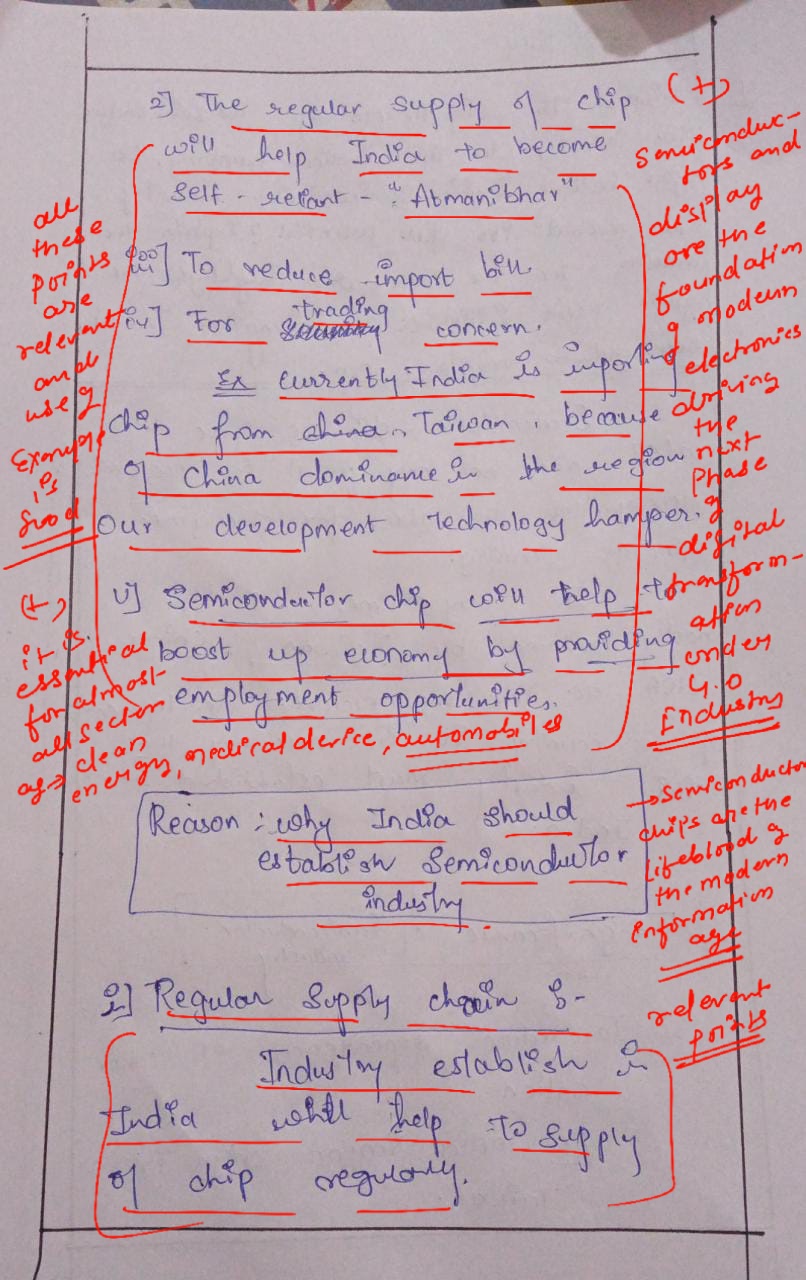 2] The regular supply of chip
will help India to become
self-reliant - "Atmanibhar"
iii] To reduce import bill.
iv] For trading concern.
Ex Currently India is importing
chip from china, Taiwan, because
of China dominame in the region
Our development technology hamper.
v] Semiconductor chip will help to
boost up economy by providing
employment opportunities.
Reason : why India should
establish Semiconductor
industry.
i] Regular Supply chain :-
Industry establish in
India will help to supply
of chip regularly.
all
these
points
are
relevant
and
use of
Example
is
Good
(+)
it is
essential
for almost
all sector
as → clean
energy, medical device, automobiles
(+)
Semiconduc-
tors and
display
are the
foundation
of modern
electronics
driving
the
next
Phase
of
digital
transform-
ation
under
4.0
Industry
→ Semiconductor
chips are the
lifeblood of
the modern
information
age
relevant
points